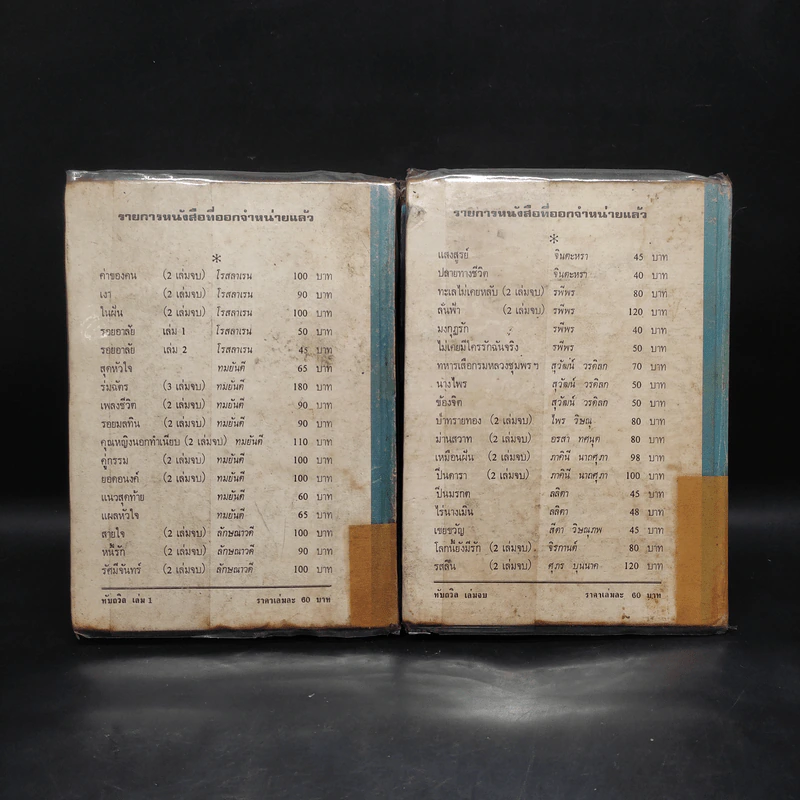 รายการหนังสือที่ออกจำหน่ายแล้ว
*
ค่าของคน (2 เล่มจบ) โรสลาเรน 100 บาท
เงา (2 เล่มจบ) โรสลาเรน 90 บาท
ในฝัน (2 เล่มจบ) โรสลาเรน 100 บาท
รอยอาลัย เล่ม 1 โรสลาเรน 50 บาท
รอยอาลัย เล่ม 2 โรสลาเรน 45 บาท
สุดหัวใจ ทมยันตี 65 บาท
ร่มฉัตร (3 เล่มจบ) ทมยันตี 180 บาท
เพลงชีวิต (2 เล่มจบ) ทมยันตี 90 บาท
รอยมลทิน (2 เล่มจบ) ทมยันตี 90 บาท
คุณหญิงนอกทำเนียบ (2 เล่มจบ) ทมยันตี 110 บาท
คู่กรรม (2 เล่มจบ) ทมยันตี 100 บาท
ยอดอนงค์ (2 เล่มจบ) ทมยันตี 100 บาท
แนวสุดท้าย ทมยันตี 60 บาท
แผลหัวใจ ทมยันตี 65 บาท
สายใจ (2 เล่มจบ) ลักษณาวดี 100 บาท
หนี้รัก (2 เล่มจบ) ลักษณาวดี 90 บาท
รัศมีจันทร์ (2 เล่มจบ) ลักษณาวดี 100 บาท
ทับถวิล เล่ม 1 ราคาเล่มละ 60 บาท
รายการหนังสือที่ออกจำหน่ายแล้ว
*
แสงสูรย์ จินตะหรา 45 บาท
ปลายทางชีวิต จินตะหรา 40 บาท
ทะเลไม่เคยหลับ (2 เล่มจบ) รพีพร 80 บาท
ลั่นฟ้า (2 เล่มจบ) รพีพร 120 บาท
มงกุฎรัก รพีพร 40 บาท
ไม่เคยมีใครรักฉันจริง รพีพร 50 บาท
ทหารเสือกรมหลวงชุมพรฯ สุวัฒน์ วรดิลก 70 บาท
นางไพร สุวัฒน์ วรดิลก 50 บาท
ข้องจิต สุวัฒน์ วรดิลก 50 บาท
บำทรายทอง (2 เล่มจบ) ไพร วิษณุ 80 บาท
ม่านสวาท (2 เล่มจบ) อรสา ทศนุต 80 บาท
เหมือนฝัน (2 เล่มจบ) ภาคินี นาถศุภา 98 บาท
ปิ่นดารา (2 เล่มจบ) ภาคินี นาถศุภา 100 บาท
ปิ่นมรกต ลลิตา 45 บาท
ไร่นางเมิน ลลิตา 48 บาท
เขยขวัญ สีดา วิษณุภพ 45 บาท
โลกนี้ยังมีรัก (2 เล่มจบ) จิรกานต์ 80 บาท
รสลิน (2 เล่มจบ) ศุภร บุนนาค 120 บาท
ทับถวิล เล่มจบ ราคาเล่มละ 60 บาท